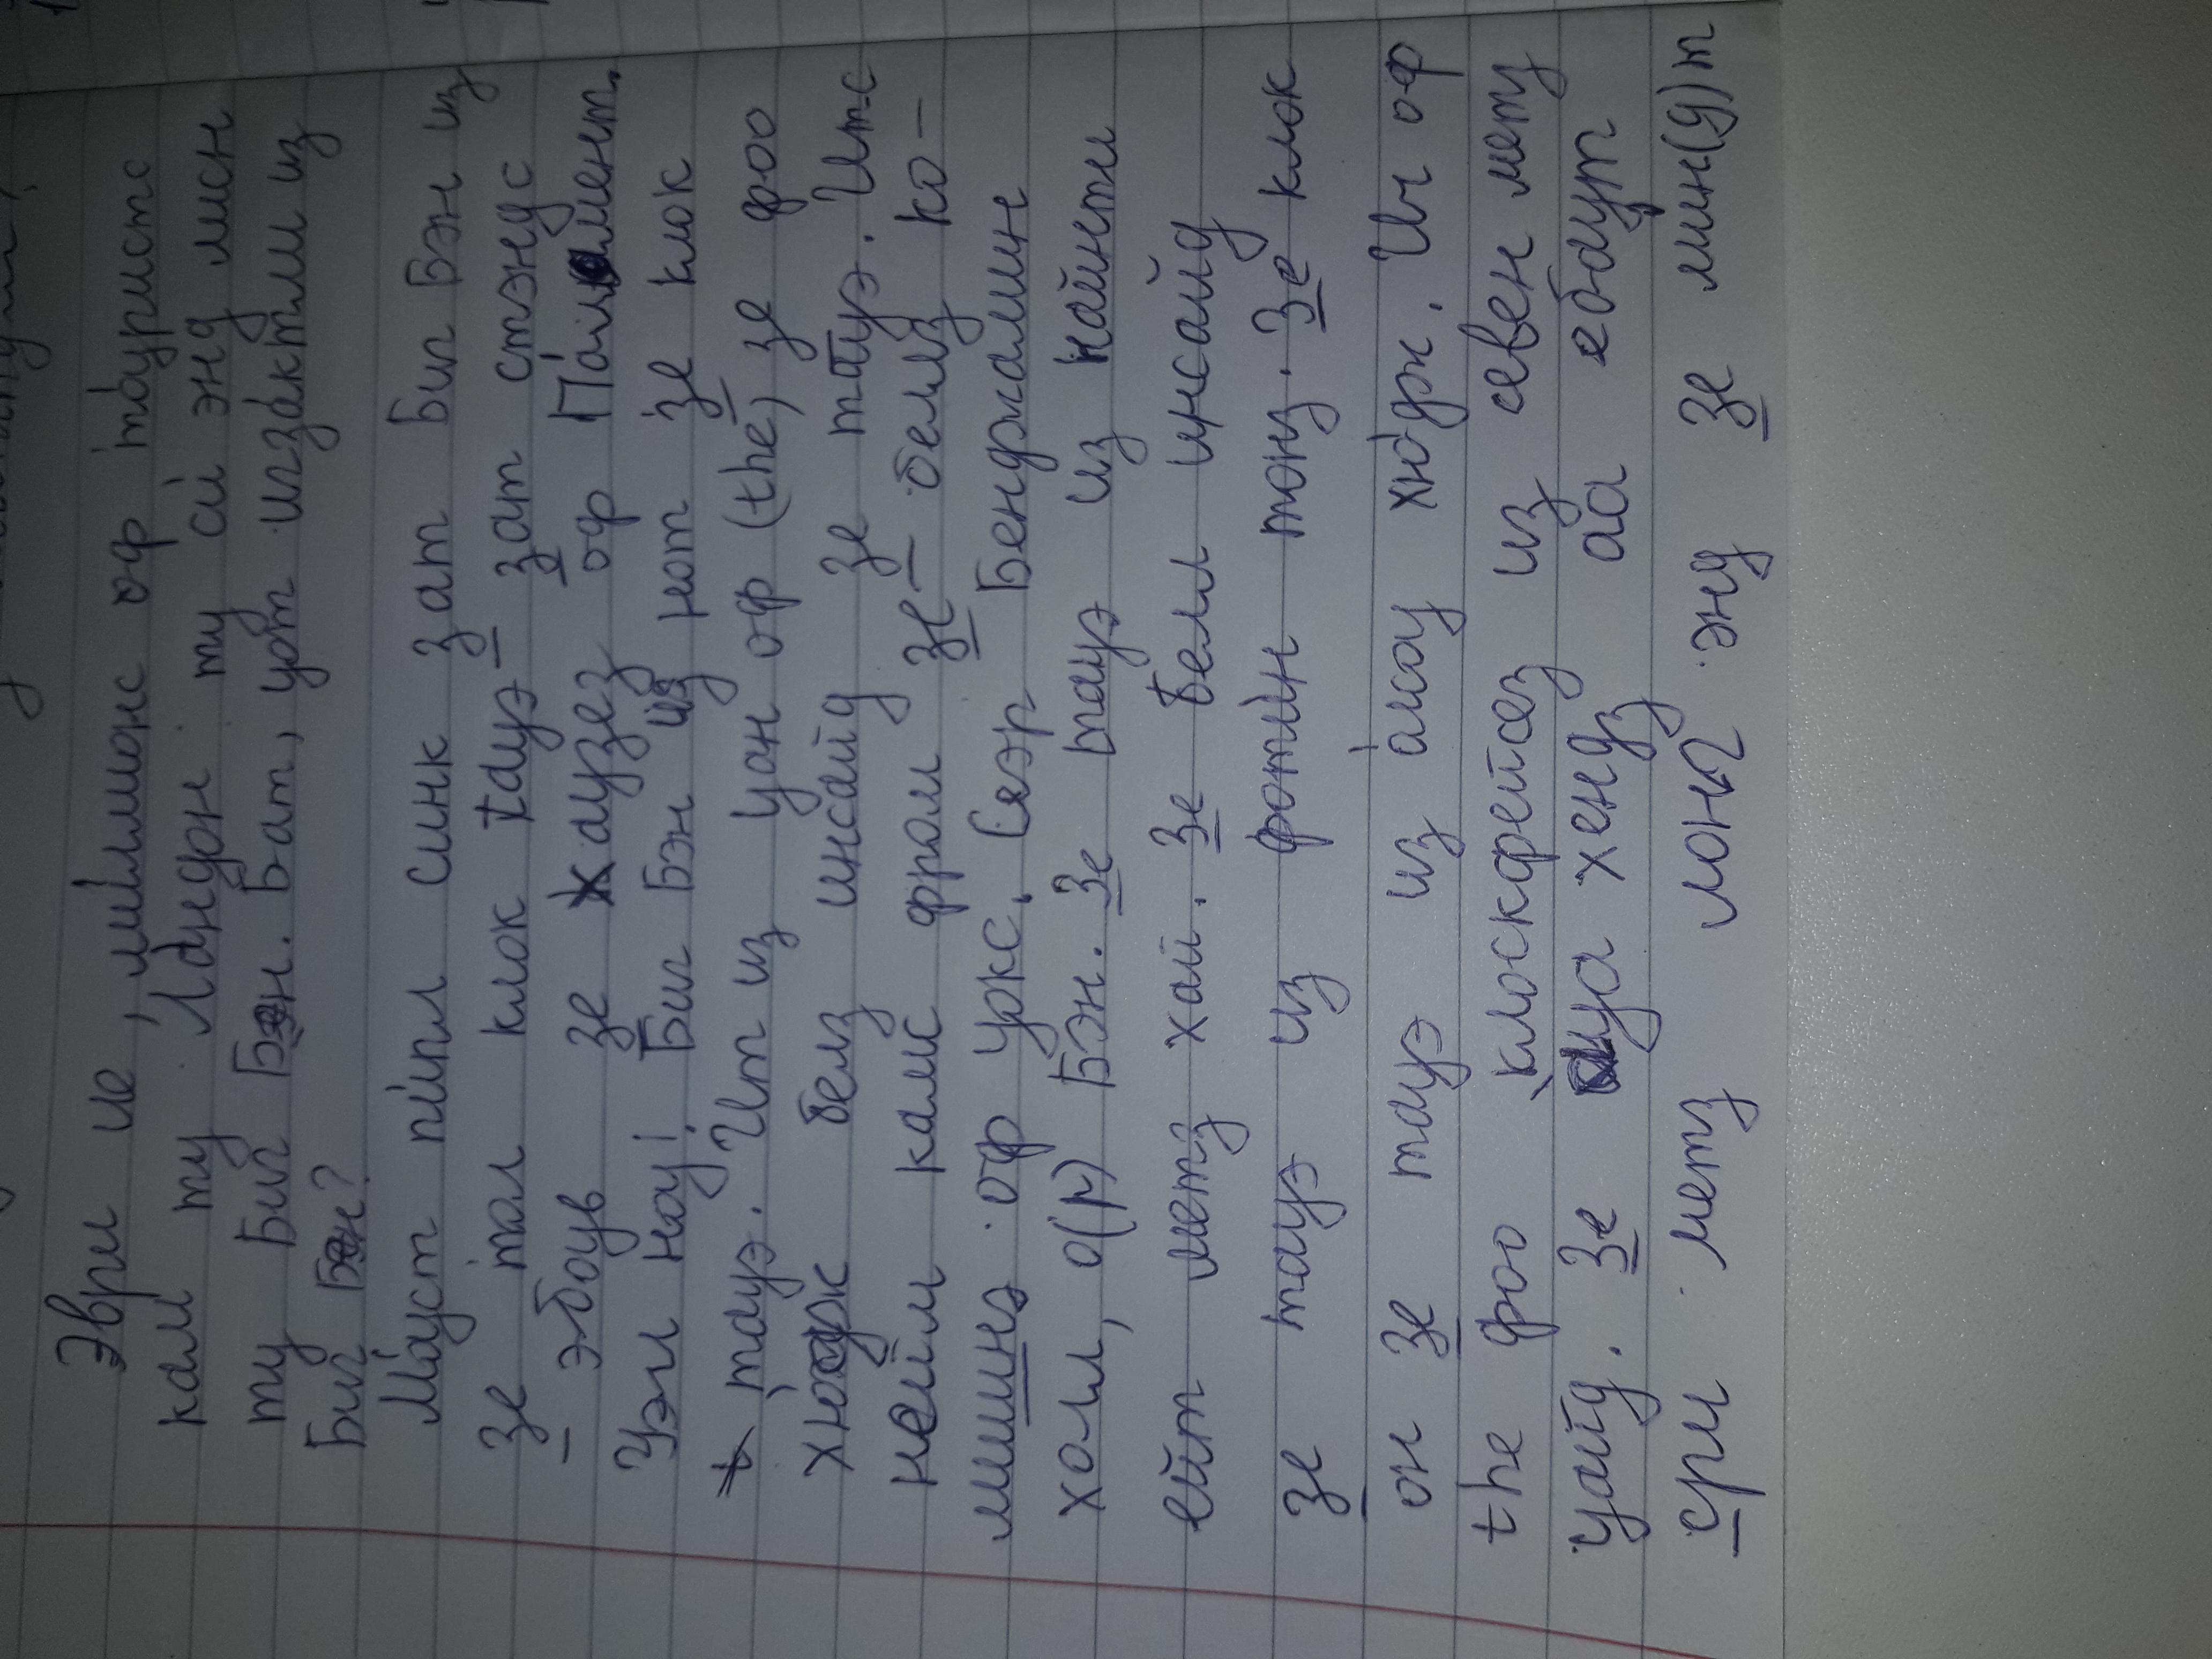 Эври ие, миллионс оф туристс
кам ту Ландон ту си энд лисн
ту Биг Бэн. Бат, уот игзактли из
Биг Бэн?
Моуст пипл синк зат Биг Бэн из
зе тол клок тауэ зат стэндс
эбоув зе хаузез оф Палмент.
Уэл ноу! Биг Бэн из нот зе клок
тауэ. Ит из уан оф (the) зе фоо
хюдж белз инсайд зе тауэ. Итс
нейм камс фром зе белз ко-
мишнэ оф уокс, Сеэр Бенджамин
холл, о(р) Бэн. Зе тауэ из найнти
ейт метз хай. Зе белл инсайд
зе тауэ из фотин тонз. Зе клок
он зе тауэ из алсоу хюдж. Ич оф
the фоо клоскфейсез из севен метз
уайд. Зе уа хендз аа ебаут
сри метз лонг энд зе мин(у)т